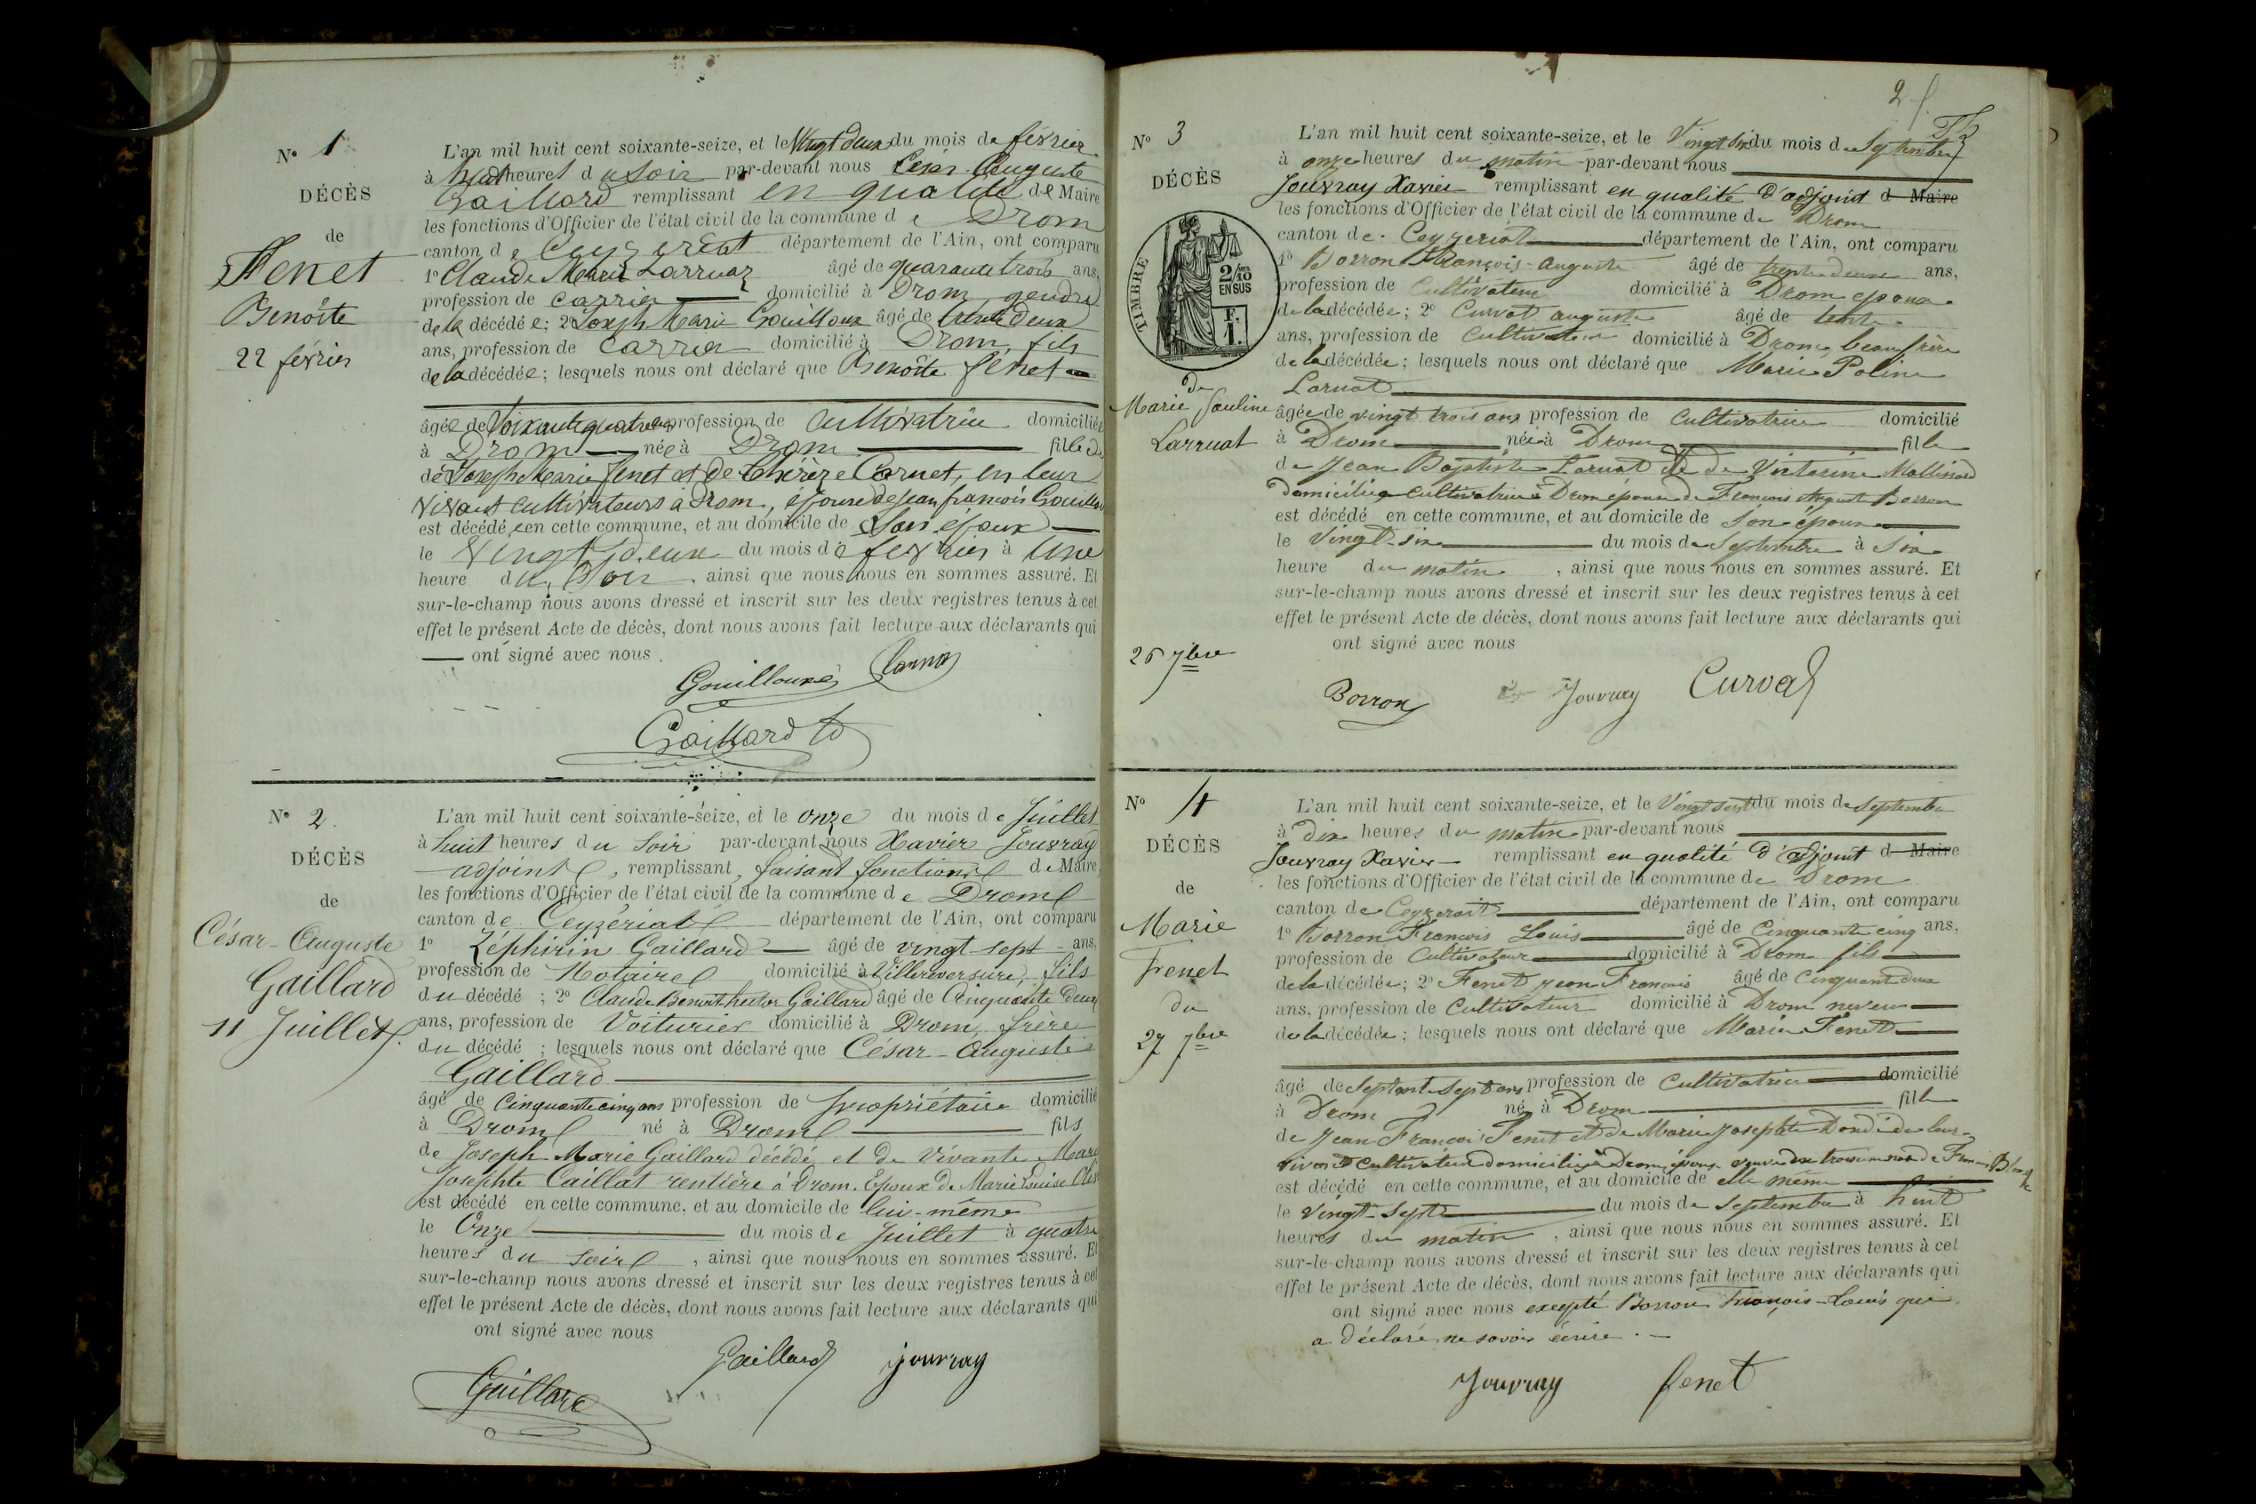 N° 1
DÉCÈS
de
Fenet
Benoîte
22 février
L'an mil huit cent soixante-seize, et le Vingt deux du mois de février
à huit heures du soir par-devant nous César Auguste
Gaillard remplissant en qualité de Maire
les fonctions d'Officier de l'état civil de la commune de Drom
canton de Ceyzeriat département de l'Ain, ont comparu
1° Claude Marie Larruaz âgé de quarante trois ans,
profession de carrier domicilié à Drom, gendre
de la décédée; 2° Joseph Marie Gouilloux âgé de trente deux
ans, profession de Carrier domicilié à Drom, fils
de la décédée; lesquels nous ont déclaré que Benoîte fenet
âgée de soixante quatre ans profession de cultivatrice domiciliée
à Drom née à Drom fille de
de Joseph Marie fenet et de Thérèze Carnet, en leur
vivant cultivateurs à Drom, épouse de jean françois Gouilloux
est décédée en cette commune, et au domicile de Son époux
le Vingt deux du mois de février à Une
heure du Soir, ainsi que nous nous en sommes assuré. Et
sur-le-champ nous avons dressé et inscrit sur les deux registres tenus à cet
effet le présent Acte de décès, dont nous avons fait lecture aux déclarants qui
ont signé avec nous
Gouilloux
Gaillard
N° 2
DÉCÈS
de
César-Auguste
Gaillard
11 Juillet
L'an mil huit cent soixante-seize, et le onze du mois de Juillet
à huit heures du soir par-devant nous Xavier Jouvray
adjoint, remplissant, faisant fonctions de Maire
les fonctions d'Officier de l'état civil de la commune de Drom
canton de Ceyzériat département de l'Ain, ont comparu
1° Zéphirin Gaillard âgé de vingt-sept ans,
profession de Notaire domicilié à Villereversure, fils
du décédé; 2° Claude Benoit hector Gaillard âgé de Cinquante deux
ans, profession de Voiturier domicilié à Drom, frère
du décédé; lesquels nous ont déclaré que César-Auguste
Gaillard
âgé de Cinquante cinq ans profession de propriétaire domicilié
à Drom né à Drom fils
de Joseph-Marie Gaillard décédé et de Vivante Marie
Josephte Caillat rentière à Drom. Epoux de Marie Louise
est décédé en cette commune, et au domicile de lui-même
le Onze du mois de Juillet à quatre
heures du soir, ainsi que nous nous en sommes assuré. Et
sur-le-champ nous avons dressé et inscrit sur les deux registres tenus à cet
effet le présent Acte de décès, dont nous avons fait lecture aux déclarants qui
ont signé avec nous
Gaillard jouvray
Gaillard
2
N° 3
DÉCÈS
TIMBRE
2/10 EN SUS
F. 1.
de
Marie Pauline
Larruat
26 7bre
L'an mil huit cent soixante-seize, et le Vingt six du mois de Septembre
à onze heures du matin par-devant nous
Jouvray Xavier remplissant en qualité d'adjoint de Maire
les fonctions d'Officier de l'état civil de la commune de Drom
canton de Ceyzeriat département de l'Ain, ont comparu
1° Borron François-auguste âgé de trente deux ans,
profession de Cultivateur domicilié à Drom epoux
de la décédée; 2° Curvat auguste âgé de trente
ans, profession de Cultivateur domicilié à Drom, beau frère
de la décédée; lesquels nous ont déclaré que Marie Poline
Laruat
âgée de vingt trois ans profession de cultivatrice domicilié
à Drom née à Drom fille
de Jean Baptiste Laruat et de Victorine
domiciliée cultivatrice à Drom épouse de François Auguste Borron
est décédé en cette commune, et au domicile de son époux
le Vingt-six du mois de Septembre à six
heure du matin, ainsi que nous nous en sommes assuré. Et
sur-le-champ nous avons dressé et inscrit sur les deux registres tenus à cet
effet le présent Acte de décès, dont nous avons fait lecture aux déclarants qui
ont signé avec nous
Borron Jouvray Curvat
N° 4
DÉCÈS
de
Marie
Fenet
du
27 7bre
L'an mil huit cent soixante-seize, et le Vingt sept du mois de septembre
à dix heures du matin par-devant nous
Jouvray Xavier remplissant en qualité d'adjoint de Maire
les fonctions d'Officier de l'état civil de la commune de Drom
canton de Ceyzerait département de l'Ain, ont comparu
1° Borron François Louis âgé de Cinquante cinq ans,
profession de Cultivateur domicilié à Drom fils
de la décédée; 2° Fenet jean François âgé de cinquante deux
ans, profession de Cultivateur domicilié à Drom neveu
de la décédée; lesquels nous ont déclaré que Marie Fenet
âgé de septante sept ans profession de Cultivatrice domicilié
à Drom né à Drom fille
de jean François Fenet et de Marie josephte de leur
vivant cultivateur domicilié à Drom,
est décédé en cette commune, et au domicile de elle même
le vingt-sept du mois de septembre à huit
heures du matin, ainsi que nous nous en sommes assuré. Et
sur-le-champ nous avons dressé et inscrit sur les deux registres tenus à cet
effet le présent Acte de décès, dont nous avons fait lecture aux déclarants qui
ont signé avec nous excepté Borron François-Louis qui
a déclaré ne savoir écrire.
Jouvray fenet